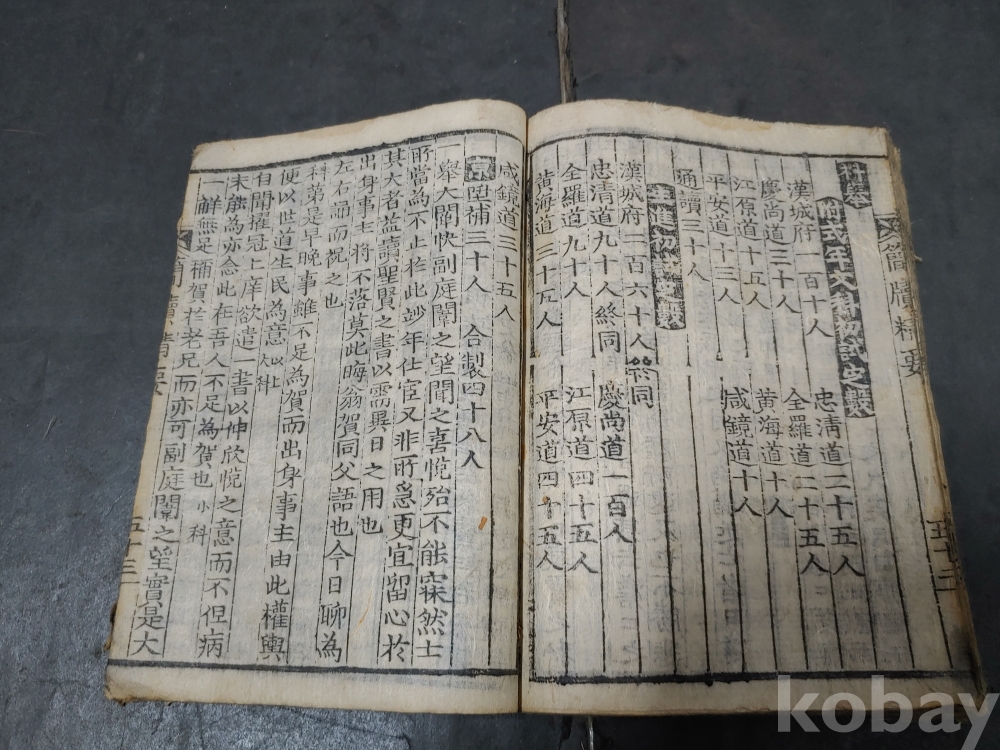 簡牘精要
科擧
附式年文科初試之數
漢城府一百十人 忠清道二十五人
慶尚道三十人 全羅道二十五人
江原道十五人 黃海道十人
平安道十三人 咸鏡道十人
通讀三十人
生進初試之數
漢城府二百六十人終同
忠清道九十人終同 慶尚道一百人
全羅道九十人 江原道四十五人
黃海道三十五人 平安道四十五人
咸鏡道三十五人
陞補三十人 合製四十八人
一擧大闡快副庭闈之望聞之喜悅殆不能寐然士
所當為不止於此妙年仕宦又非所急更宜留心於
其大者益讀聖賢之書以需異日之用也
出身事主將不落莫此晦翁賀同父語也今日聊為
左右誦而祝之也
科第是早晚事雖不足為賀而出身事主由此權輿
便以世道生民為意如社大科
自聞擢冠上庠欲遣一書以伸欣悅之意而不但病
未能為亦念此在吾人不足為賀也小科
一鮮無足稱賀於老兄而亦可副庭闈之望實是大
簡牘精要
五十三